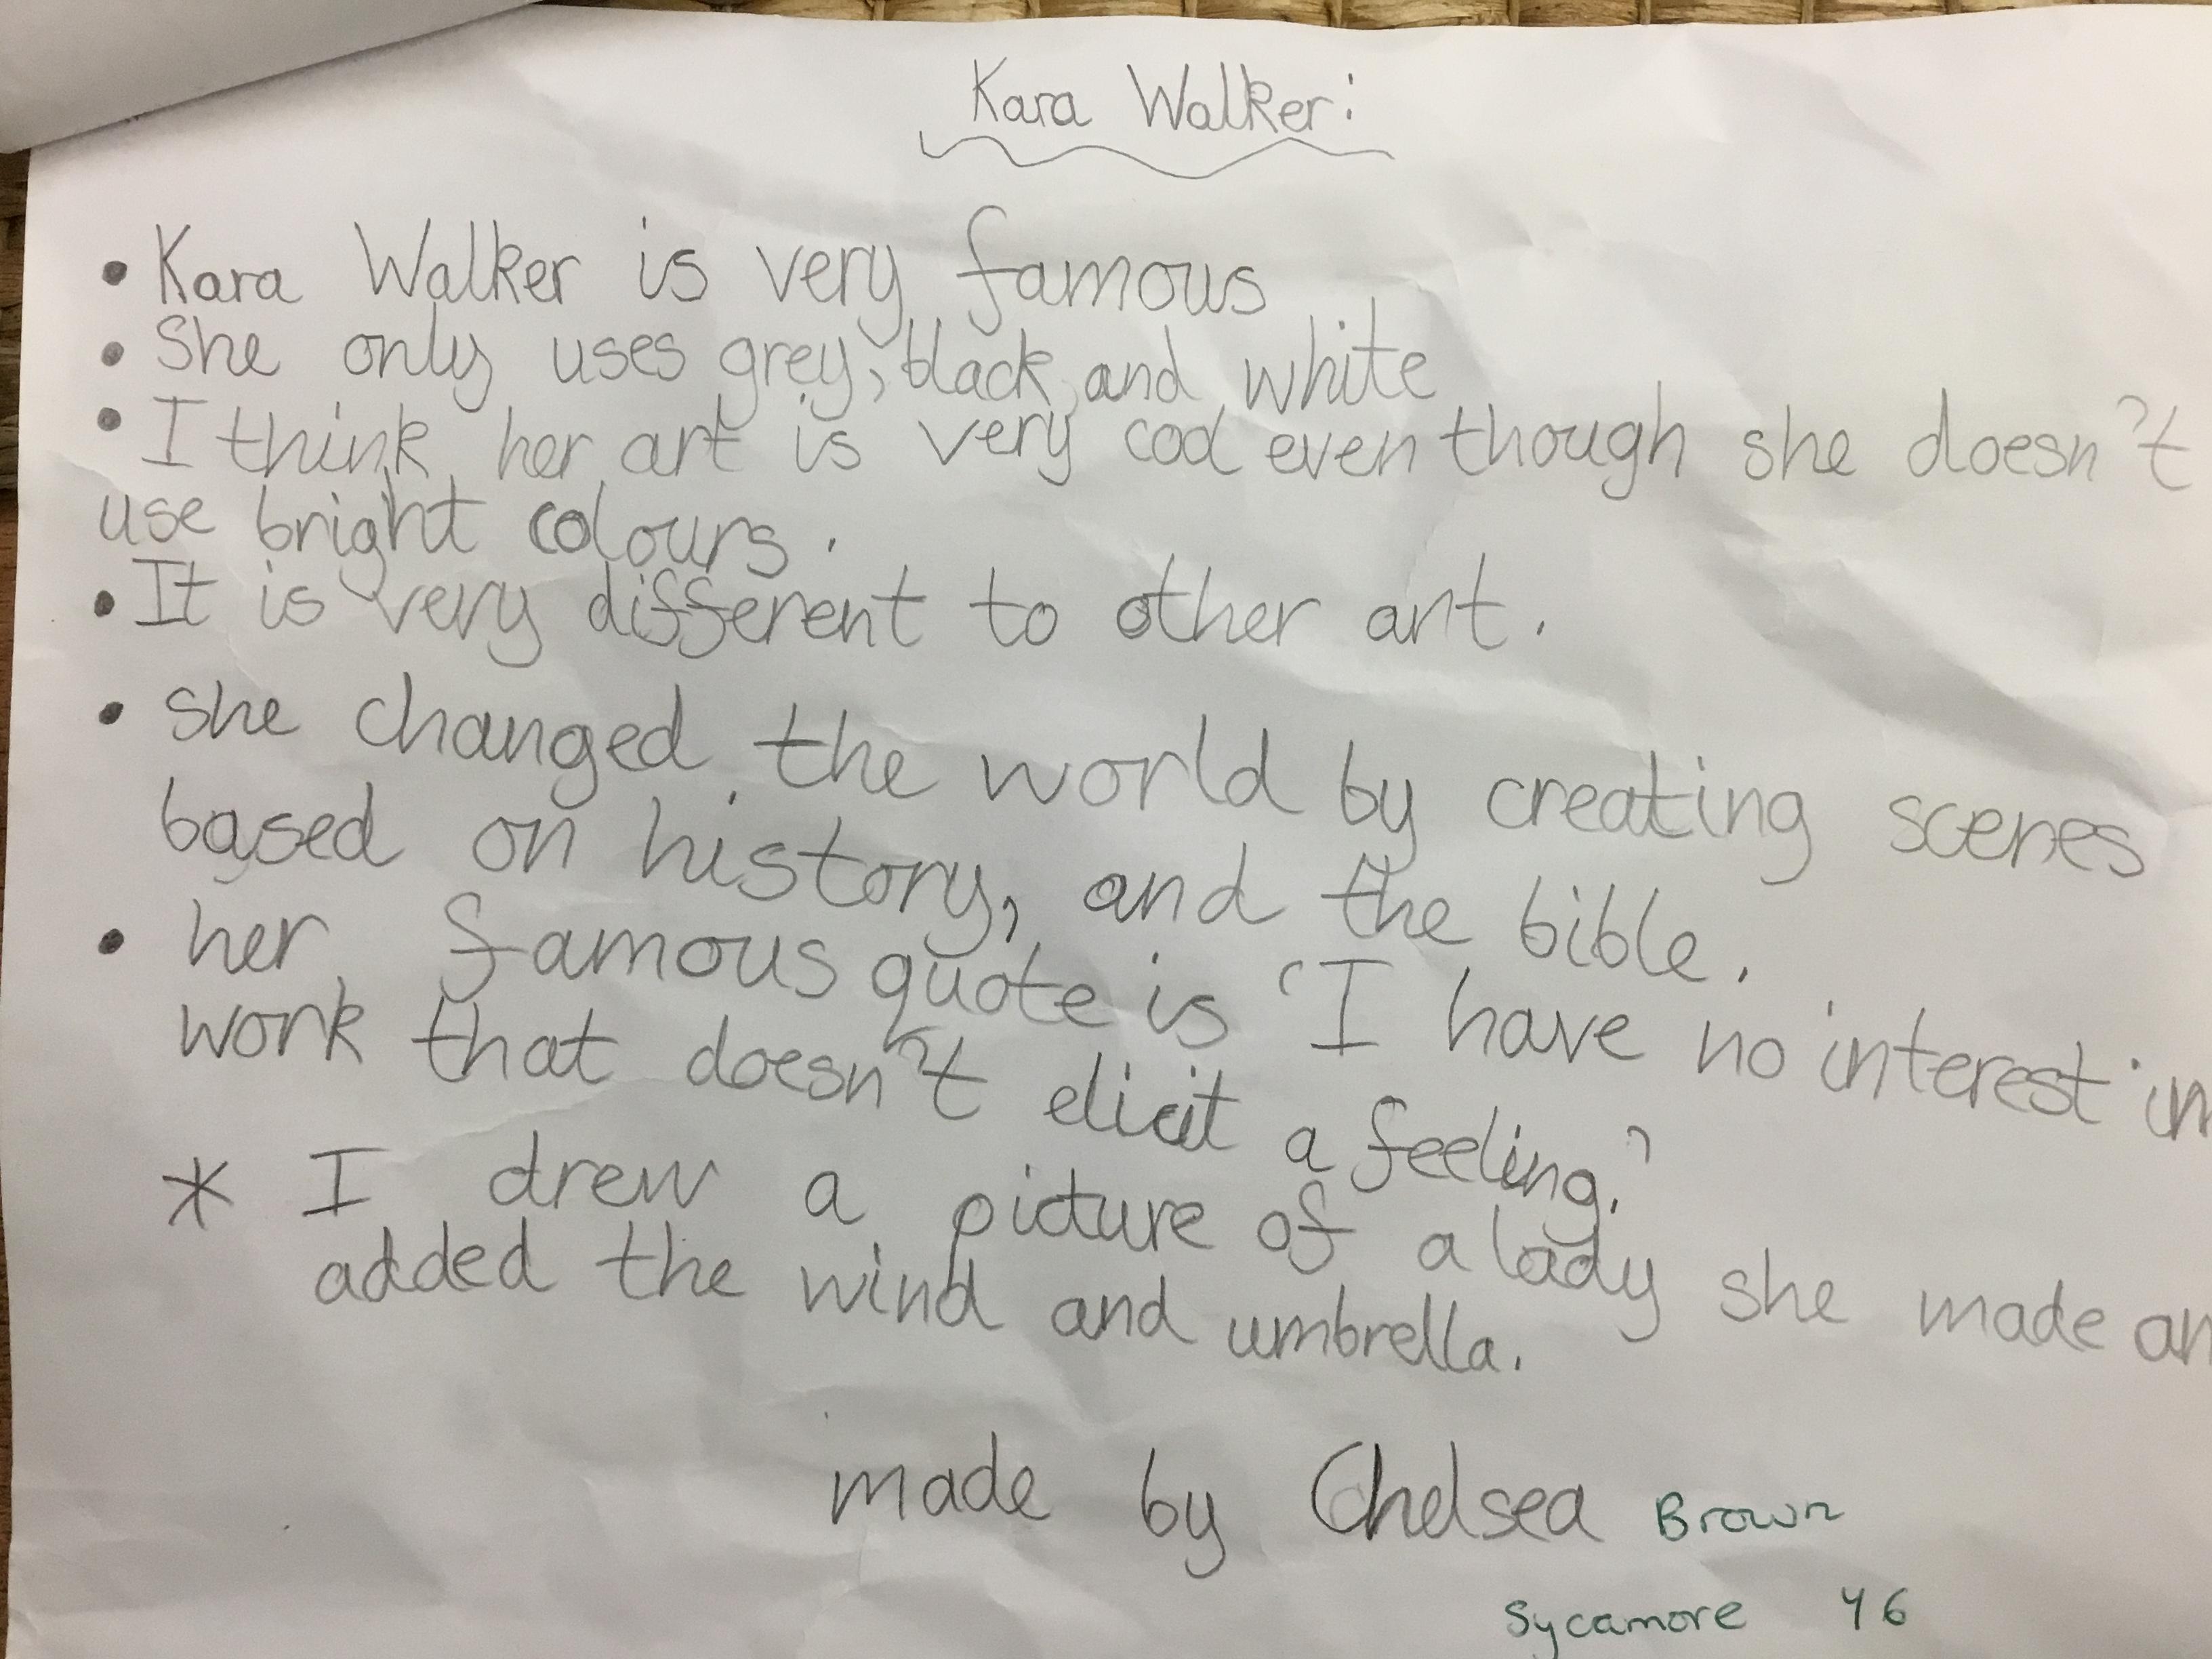 Kara Walker:
• Kara Walker is very famous
• she only uses grey, black, and white
• I think her art is very cool even though she doesn't
use bright colours.
• It is very different to other art.
• she changed the world by creating scenes
based on history, and the bible.
• her famous quote is 'I have no interest in
work that doesn't elicit a feeling.'
* I drew a picture of a lady she made an
added the wind and umbrella.
made by Chelsea Brown
Sycamore Y6